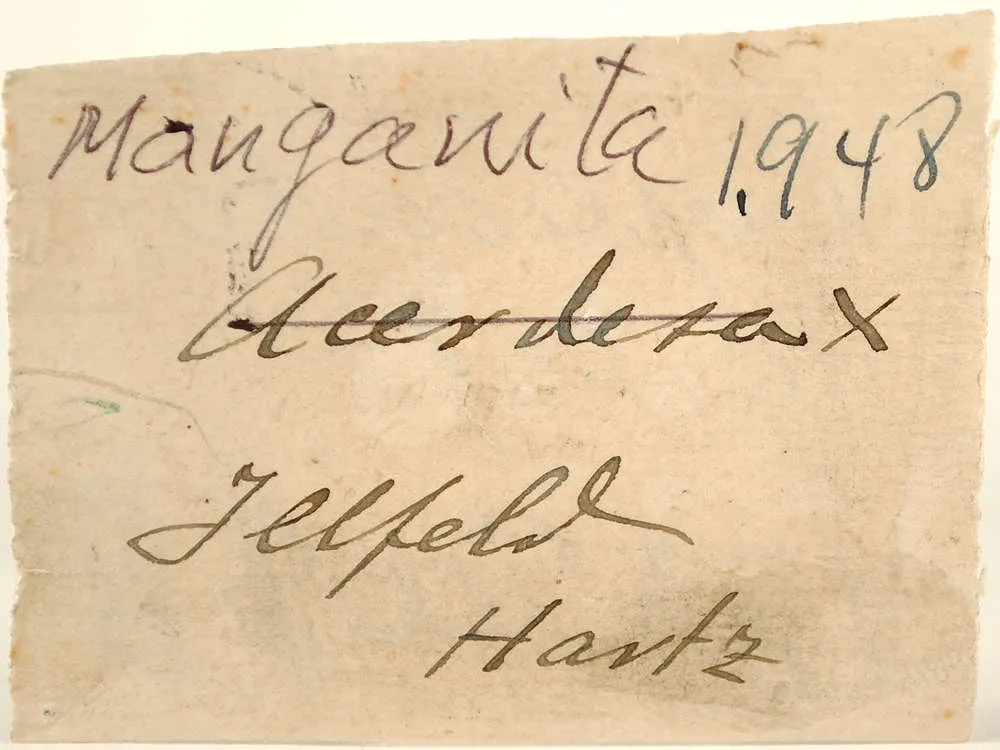 Manganita 1.948
Acerdesa X
Jelfeld
Hartz